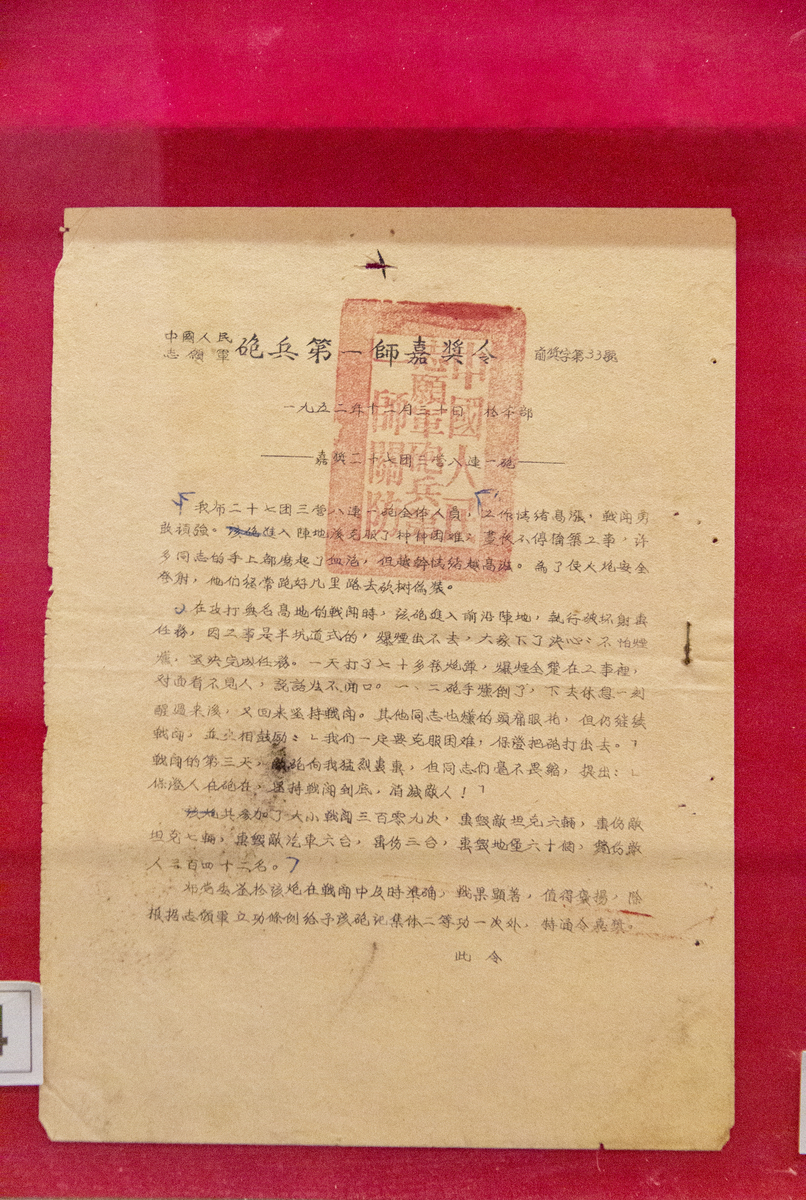 中國人民
志願軍 砲兵第一師嘉獎令 前獎字第33號
一九五二年十二月三十日 於本部
——嘉獎二十七团三营八連一砲——
我部二十七团三营八連一砲全体人員，工作情緒高漲，戰鬥勇
敢頑強。該砲進入陣地後克服了种种困难，晝夜不停搶築工事，许
多同志的手上都磨起了血泡，但越幹情緒越高漲。為了使火炮安全
發射，他们经常跑好几里路去砍树偽裝。
在攻打無名高地的戰鬥時，该砲進入前沿陣地，執行破坏射击
任務，因工事是半坑道式的，爆煙出不去，大家下了决心：不怕煙
燻，坚决完成任務。一天打了七十多發炮弹，爆煙全聚在工事裡，
对面看不見人，説話张不開口。一、二砲手燻倒了，下去休息一刻
醒過来後，又回来坚持戰鬥。其他同志也燻的頭痛眼花，但仍继续
戰鬥，並互相鼓励：「我们一定要克服困难，保證把砲打出去。」
戰鬥的第三天，敵砲向我猛烈轟击，但同志们毫不畏縮，提出：「
保證人在砲在，坚持戰鬥到底，消滅敵人！」
该炮共参加了大小戰鬥三百零九次，击毀敵坦克六輛，击伤敵
坦克七輛，击毀敵汽車六台，击伤三台，击毀地堡六十個，斃伤敵
人三百四十二名。
部党委鉴於该炮在戰鬥中及時準确，戰果顯著，值得褒揚，除
根据志願軍立功條例给予该砲记集体二等功一次外，特通令嘉獎。
此 令
中國人民
志願軍砲兵第
一師關防
4